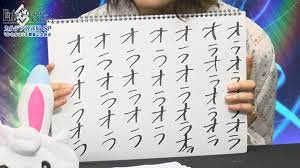 カルデア放送局SP
オラオラオラ
オラオラオラ
オラオラオラ
オラオラオラ
オラオラオラ
オラオラオラ
オラオラオラ